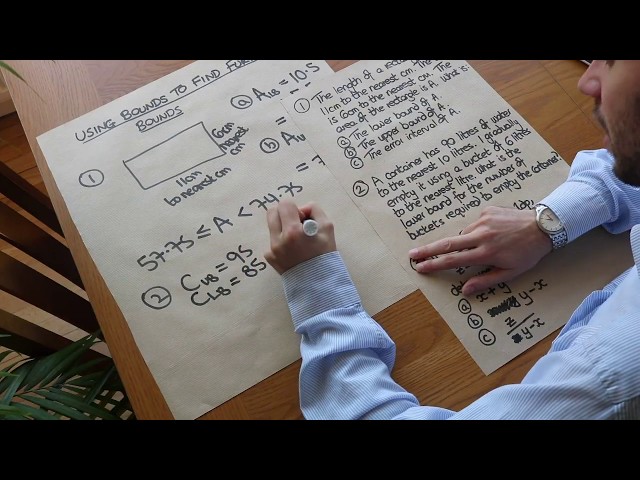 USING BOUNDS TO FIND
BOUNDS
①
6cm
nearest
cm
11cm
to nearest cm
ⓐ A_LB = 10.5
ⓑ A_U
=
57.75 ≤ A < 74.75
② C_UB = 95
C_LB = 85
① The length of a
11cm to the nearest cm. The
is 6cm to the nearest cm. The
area of the rectangle is A. What is:
ⓐ The lower bound of A.
ⓑ The upper bound of A.
ⓒ The error interval of A.
② A container has 90 litres of water
to the nearest 10 litres. I gradually
empty it using a bucket of 6 litres
to the nearest litre. What is the
lower bound for the number of
buckets required to empty the container?
1dp
ⓐ x + y
ⓑ y - x
ⓒ z
y - x